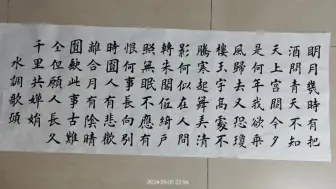 明月幾時有把
酒問青天不知
天上宮闕今夕
是何年我欲乘
風歸去又恐瓊
樓玉宇高處不
勝寒起舞弄清
影何似在人間
轉朱閣低綺戶
照無眠不應有
恨何事長向別
時圓人有悲歡
離合月有陰晴
圓缺此事古難
全但願人長久
千里共嬋娟
水調歌頭